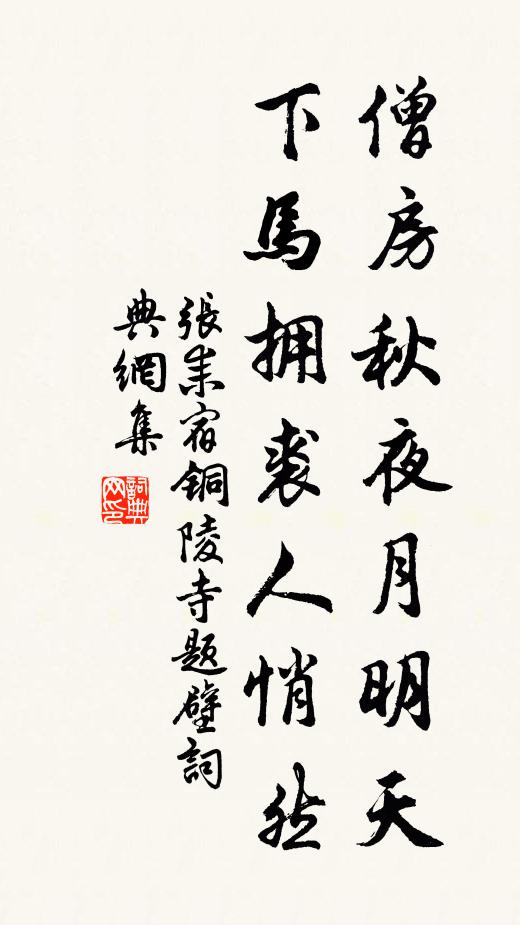 僧房秋夜月明天
下馬拥裘人悄然
張耒宿铜陵寺題壁詞
典網集
詞典
网印